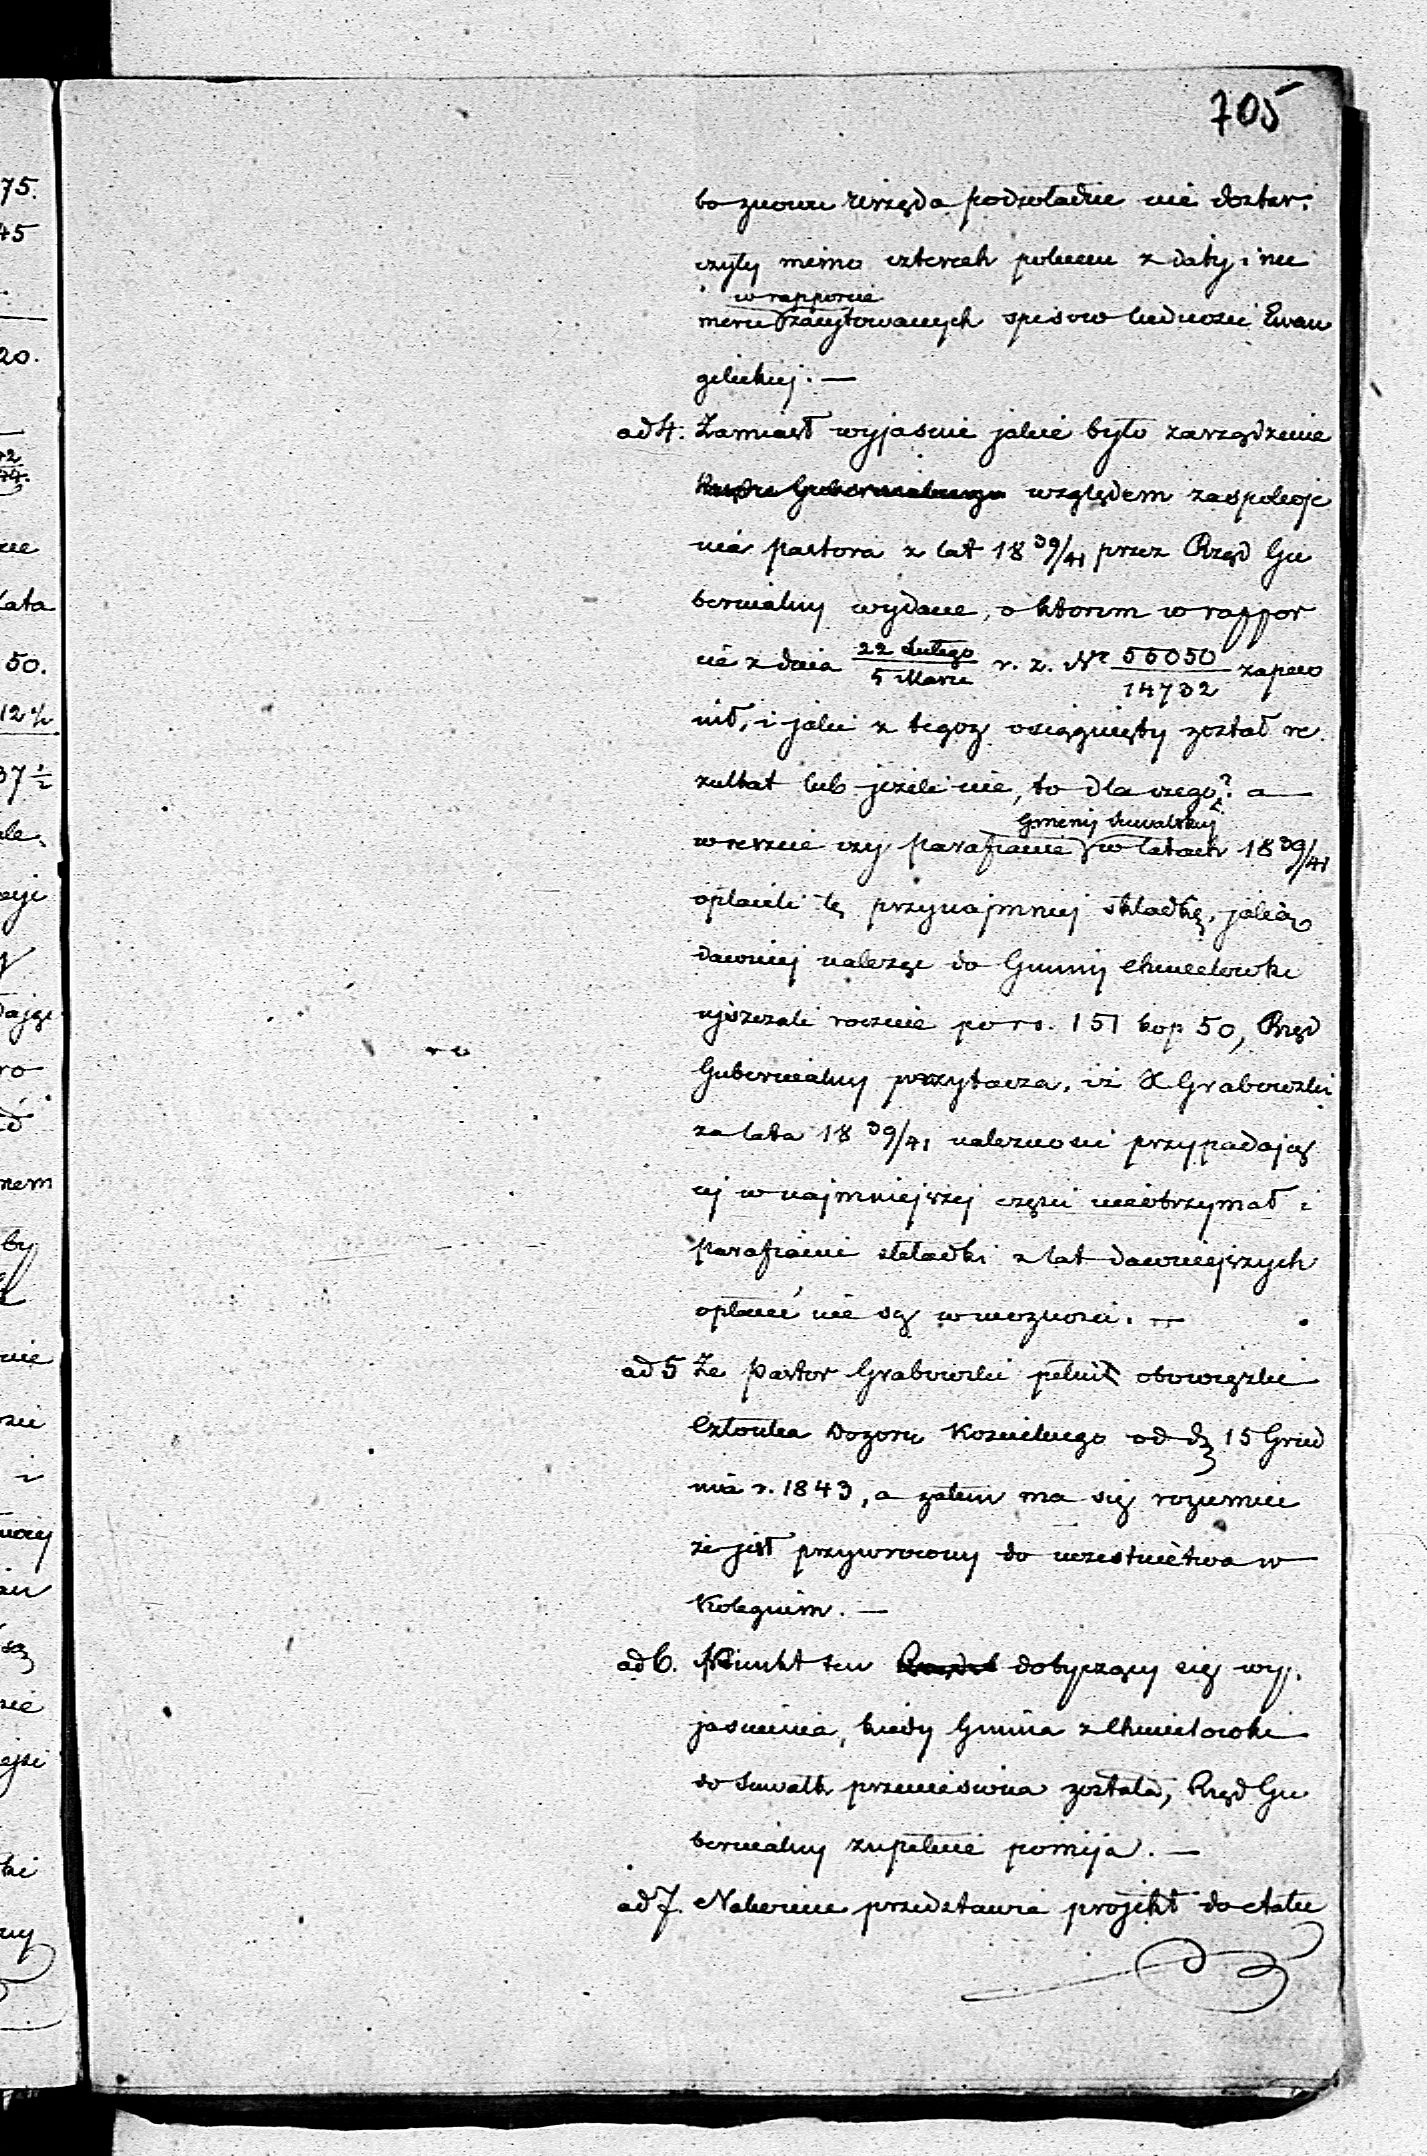 705
bo znowu Urzęda podwładne nie dostar:
czyły mimo czterech poleceń z daty i nu
w rapporcie
meru zacytowanych spisow ludnosci Ewan
gelickiej. —
ad 4. Zamiast wyjasnie jakie było zarządzenie
względem zaspokoje
nia pastora z lat 18 39/41 przez Rząd Gu
bernialny wydane, o ktorem w rappor
cie z dnia 22 Lutego / 5 Marca r. z. Nr 55050 / 14732 zapew
nił, i jaki z tegoz osiągnięty został re
zultat lub jezeli nie, to dla czego? a —
Gminy Suwalskiej
wreszcie czy parafianie w latach 18 39/41
opłacili tę przynajmniej składkę, jaką
dawniej należąc do Gminy Chmielowki
uiszczali rocznie po rs. 151 kop 50, Rząd
Gubernialny przytacza, iż X Grabowski
za lata 18 39/41 naleznosci przypadają
cej w najmniejszej części nieotrzymał i
parafianie składki z lat dawniejszych
opłacić nie są w moznosci. —
ad 5 Ze Pastor Grabowski pełnił obowiązki
Członka Dozoru Koscielnego od d. 15 Grud
nia r. 1843, a zatem ma się rozumiec
ze jest przywrocony do uczestnictwa w
Kolegium. —
ad 6. Punkt ten dotyczący się wy:
jasnienia, kiedy Gmina z Chmielowki
do Suwałk przeniesiona została, Rząd Gu
bernialny zupełnie pomija. —
ad 7. Nakoniec przedstawia projekt do etatu